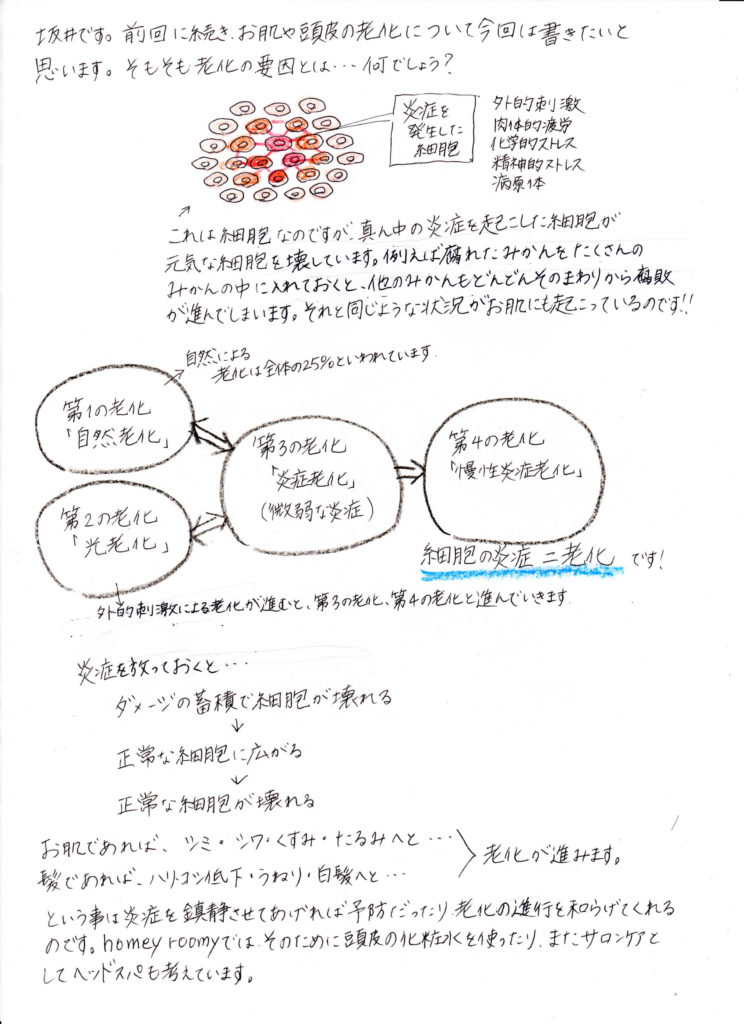 坂井です。前回に続き、お肌や頭皮の老化について今回は書きたいと
思います。そもそも老化の要因とは…何でしょう？
炎症を
発生した
細胞
外的刺激
肉体的疲労
化学的ストレス
精神的ストレス
病原体
これは細胞なのですが、真ん中の炎症を起こした細胞が
元気な細胞を壊しています。例えば腐れたみかんをたくさんの
みかんの中に入れておくと、他のみかんもどんどんそのまわりから腐敗
が進んでしまいます。それと同じような状況がお肌にも起こっているのです!!
自然による
老化は全体の25%といわれています。
第1の老化
「自然老化」
第2の老化
「光老化」
第3の老化
「炎症老化」
(微弱な炎症)
第4の老化
「慢性炎症老化」
細胞の炎症=老化 です!
外的刺激による老化が進むと、第3の老化、第4の老化と進んでいきます。
炎症を放っておくと…
ダメージの蓄積で細胞が壊れる
↓
正常な細胞に広がる
↓
正常な細胞が壊れる
お肌であれば、シミ・シワ・くすみ・たるみへと…
髪であれば、ハリコシ低下・うねり・白髪へと…
老化が進みます。
という事は炎症を鎮静させてあげれば予防だったり、老化の進行を和らげてくれる
のです。homey roomyでは、そのために頭皮の化粧水を使ったり、またサロンケアと
してヘッドスパも考えています。